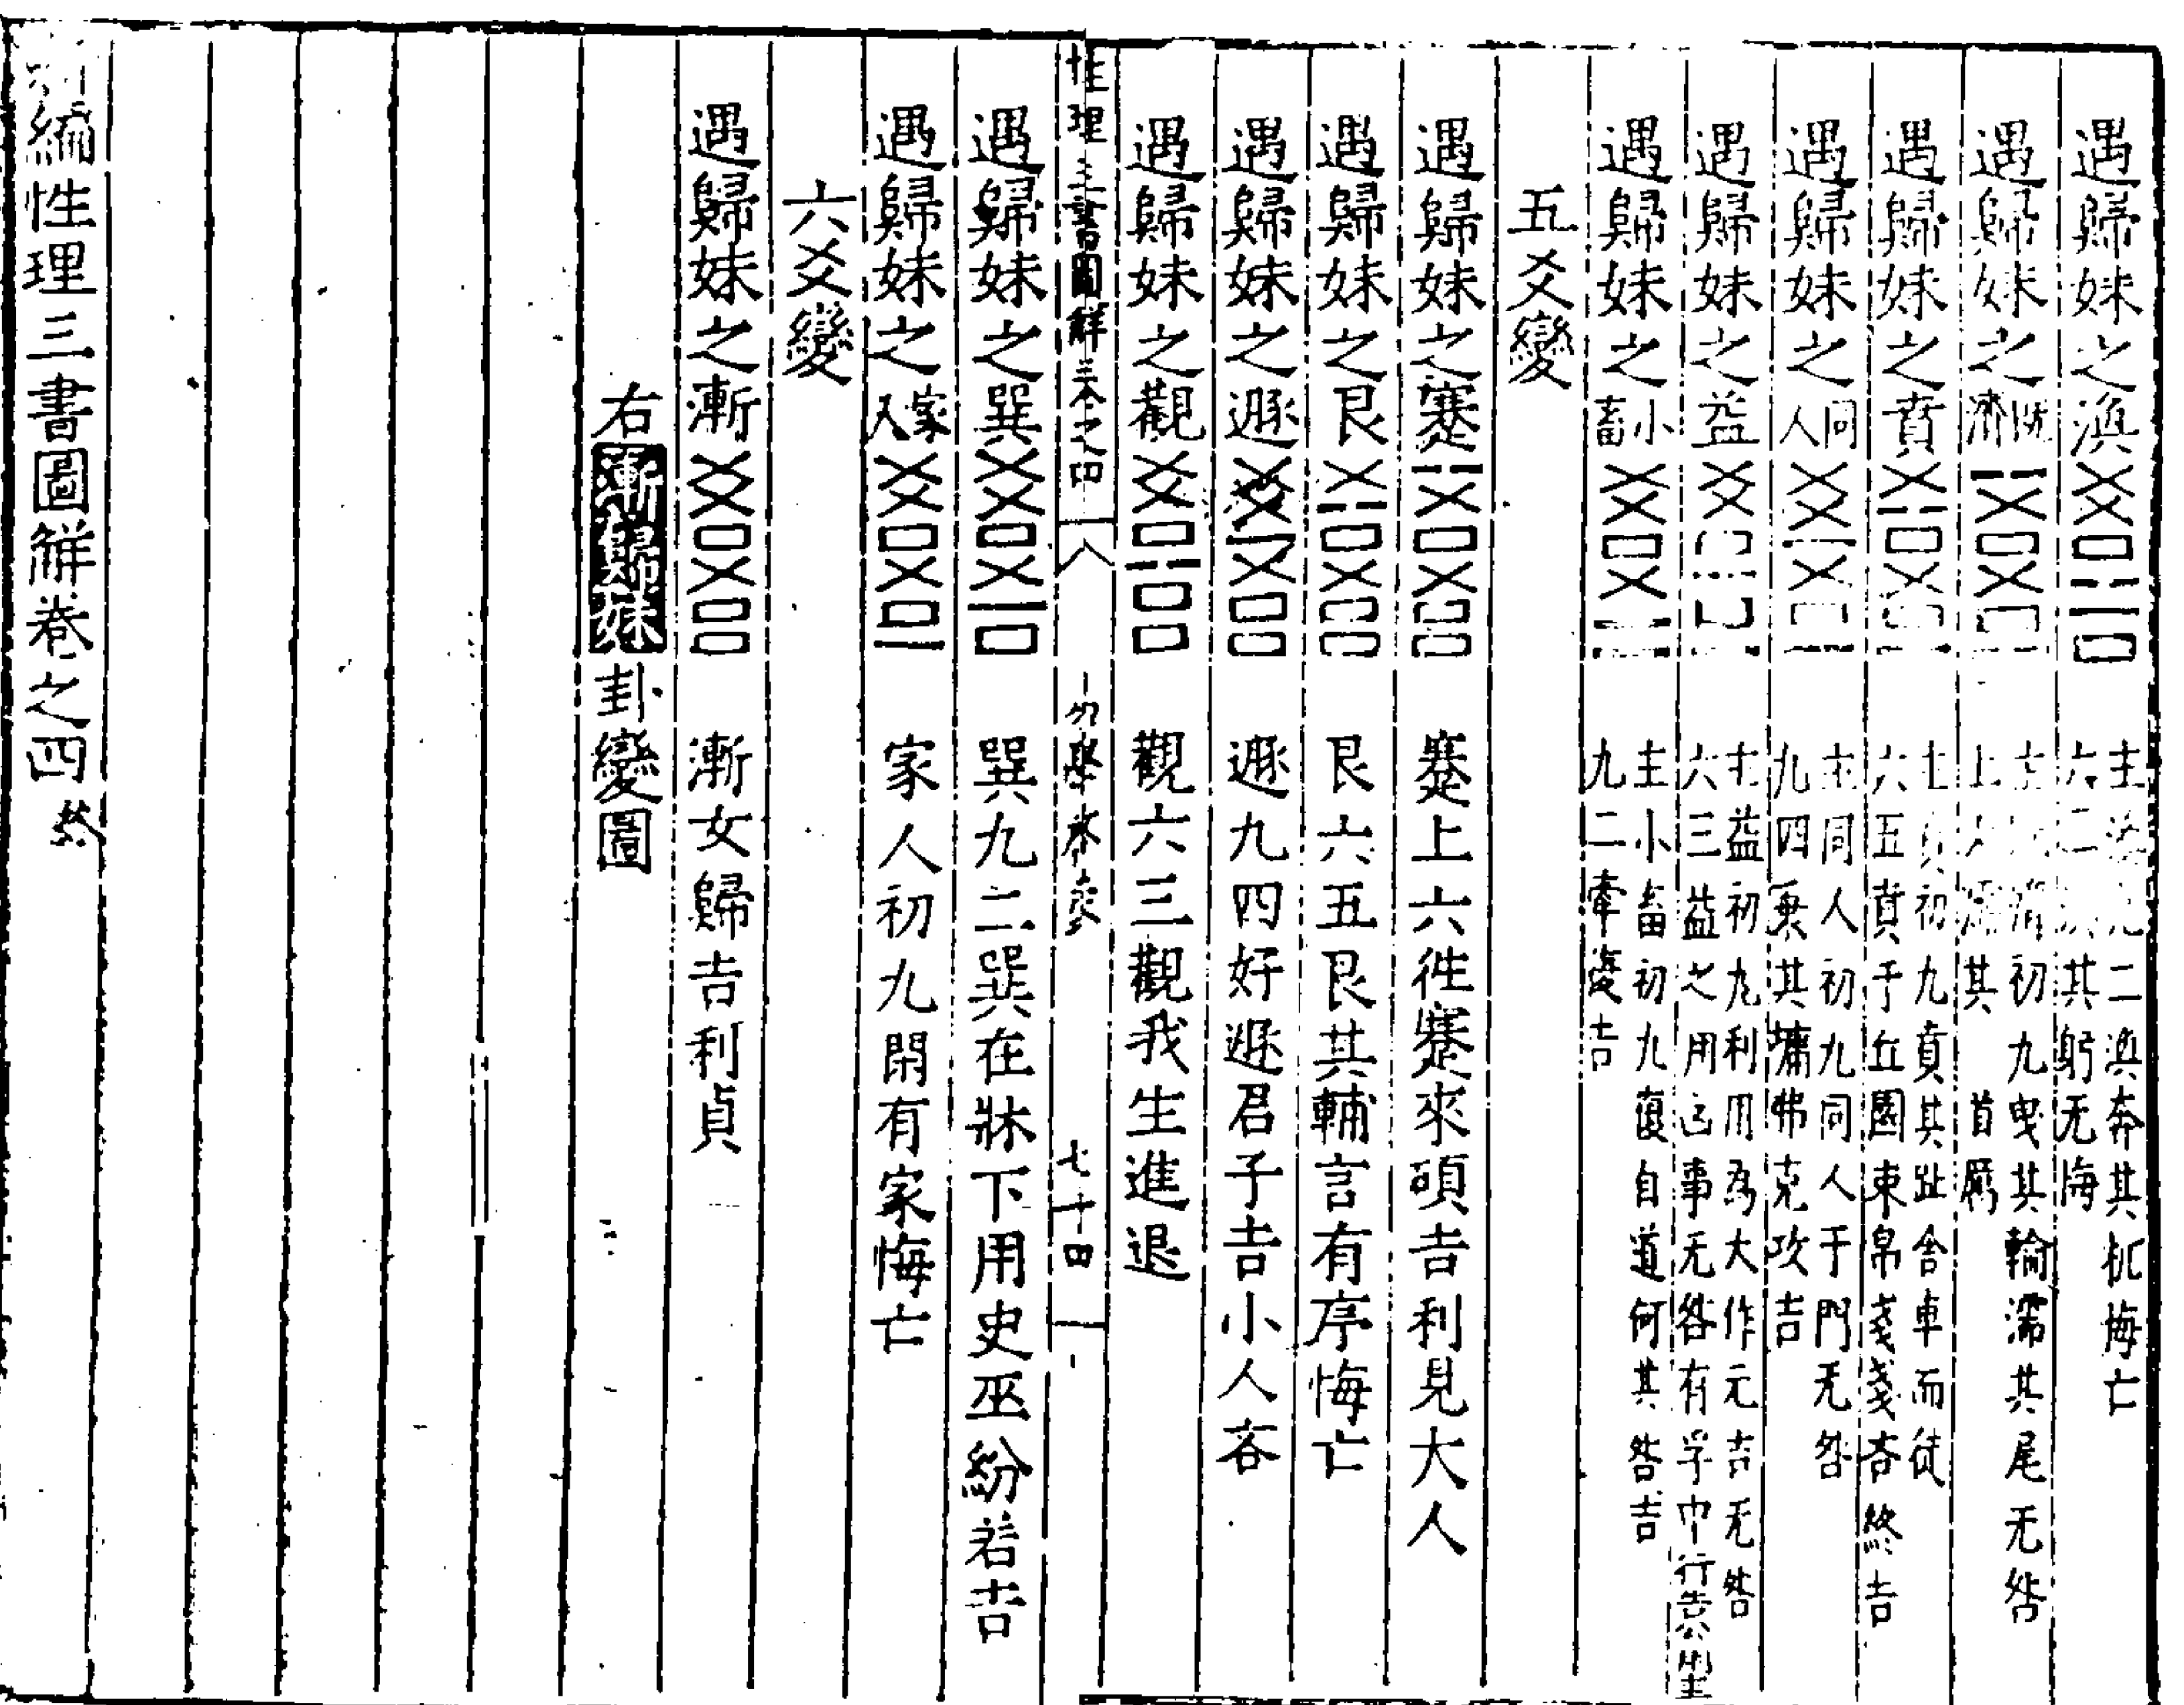 遇歸妹之渙 主渙九二渙奔其机悔亡
六三渙其躬无悔
遇歸妹之既濟 主既濟初九曳其輪濡其尾无咎
上六濡其首厲
遇歸妹之賁 主賁初九賁其趾舍車而徒
六五賁于丘園束帛戔戔吝終吉
遇歸妹之同人 主同人初九同人于門无咎
九四乗其墉弗克攻吉
遇歸妹之益 主益初九利用為大作元吉无咎
六三益之用凶事无咎有孚中行告公用圭
遇歸妹之小畜 主小畜初九復自道何其咎吉
九二牽復吉
五爻變
遇歸妹之蹇 蹇上六徃蹇來碩吉利見大人
遇歸妹之艮 艮六五艮其輔言有序悔亡
遇歸妹之遯 遯九四好遯君子吉小人吝
遇歸妹之觀 觀六三觀我生進退
性理三書圖觧卷之四 八 七十四
遇歸妹之巽 巽九二巽在牀下用史巫紛若吉
遇歸妹之家人 家人初九閑有家悔亡
六爻變
遇歸妹之漸 漸女歸吉利貞
右漸歸妹卦變圖
新編性理三書圖觧卷之四終